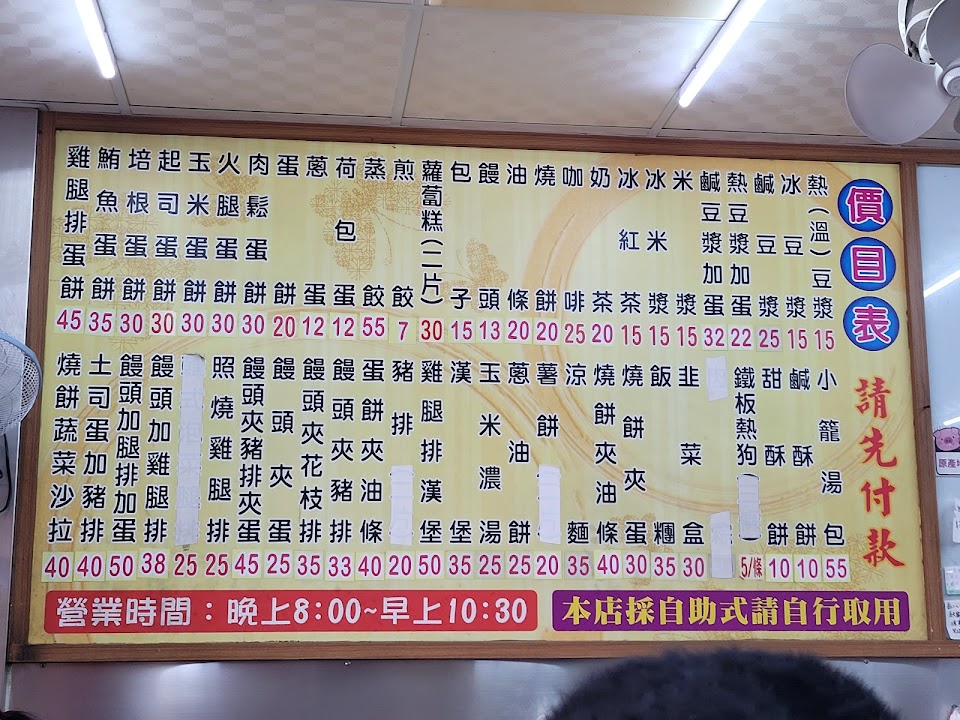 價目表
請先付款
熱(溫)豆漿 15
冰豆漿 15
鹹豆漿 25
熱豆漿加蛋 22
鹹豆漿加蛋 32
米漿 15
冰米漿 15
冰紅茶 15
奶茶 20
咖啡 25
燒餅 20
油條 20
饅頭 13
包子 15
蘿蔔糕(二片) 30
煎餃 7
蒸餃 55
荷包蛋 12
蔥蛋 12
蛋餅 20
肉鬆蛋餅 30
火腿蛋餅 30
玉米蛋餅 30
起司蛋餅 30
培根蛋餅 30
鮪魚蛋餅 35
雞腿排蛋餅 45
小籠湯包 55
鹹酥餅 10
甜酥餅 10
鐵板熱狗 5/條
韭菜盒 30
飯糰 35
燒餅夾蛋 30
燒餅夾油條 40
涼麵 35
薯餅 20
蔥油餅 25
玉米濃湯 25
漢堡 35
雞腿排漢堡 50
豬排 20
蛋餅夾油條 40
饅頭夾豬排 33
饅頭夾花枝排 35
饅頭夾蛋 25
饅頭夾豬排夾蛋 45
照燒雞腿排 25
25
饅頭加雞腿排 38
饅頭加腿排加蛋 50
土司蛋加豬排 40
燒餅蔬菜沙拉 40
營業時間：晚上8:00~早上10:30
本店採自助式請自行取用